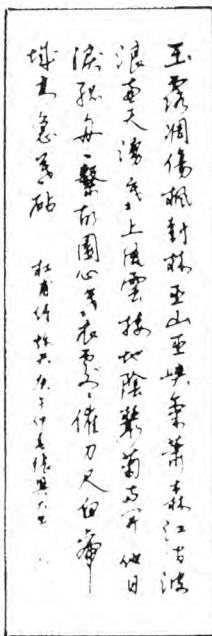 玉露凋傷楓樹林巫山巫峽氣蕭森江間波
浪兼天湧塞上風雲接地陰叢菊兩開他日
淚孤舟一繫故園心寒衣處處催刀尺白帝
城高急暮砧 杜甫詩秋興庚午仲春